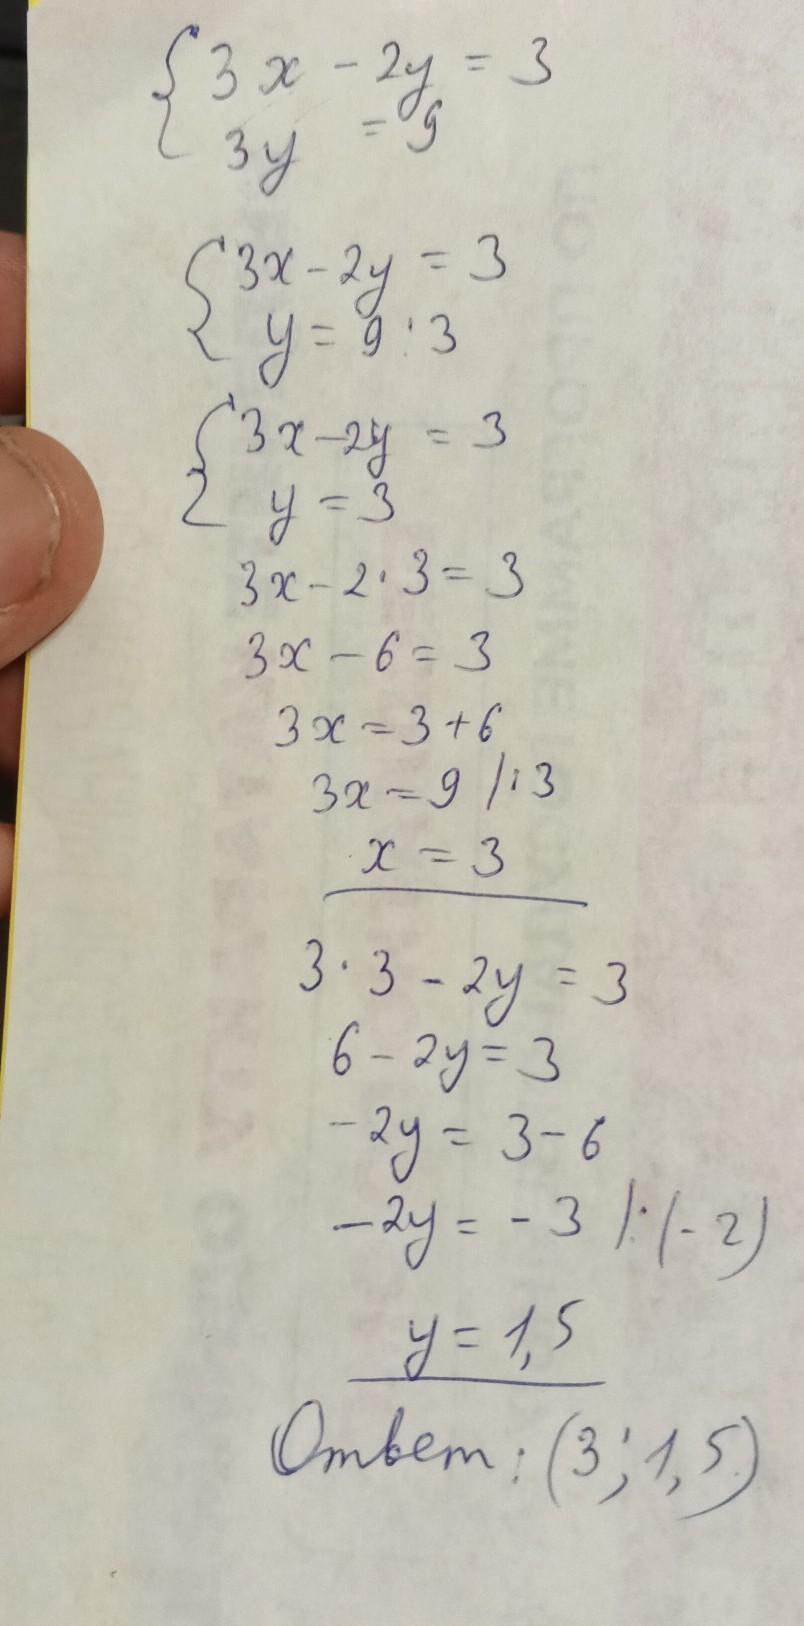 {3x - 2y = 3
3y = 9
{3x - 2y = 3
y = 9 : 3
{3x - 2y = 3
y = 3
3x - 2 · 3 = 3
3x - 6 = 3
3x = 3 + 6
3x = 9 /:3
x = 3
3 · 3 - 2y = 3
6 - 2y = 3
-2y = 3 - 6
-2y = -3 /:(-2)
y = 1,5
Ответ: (3; 1,5)